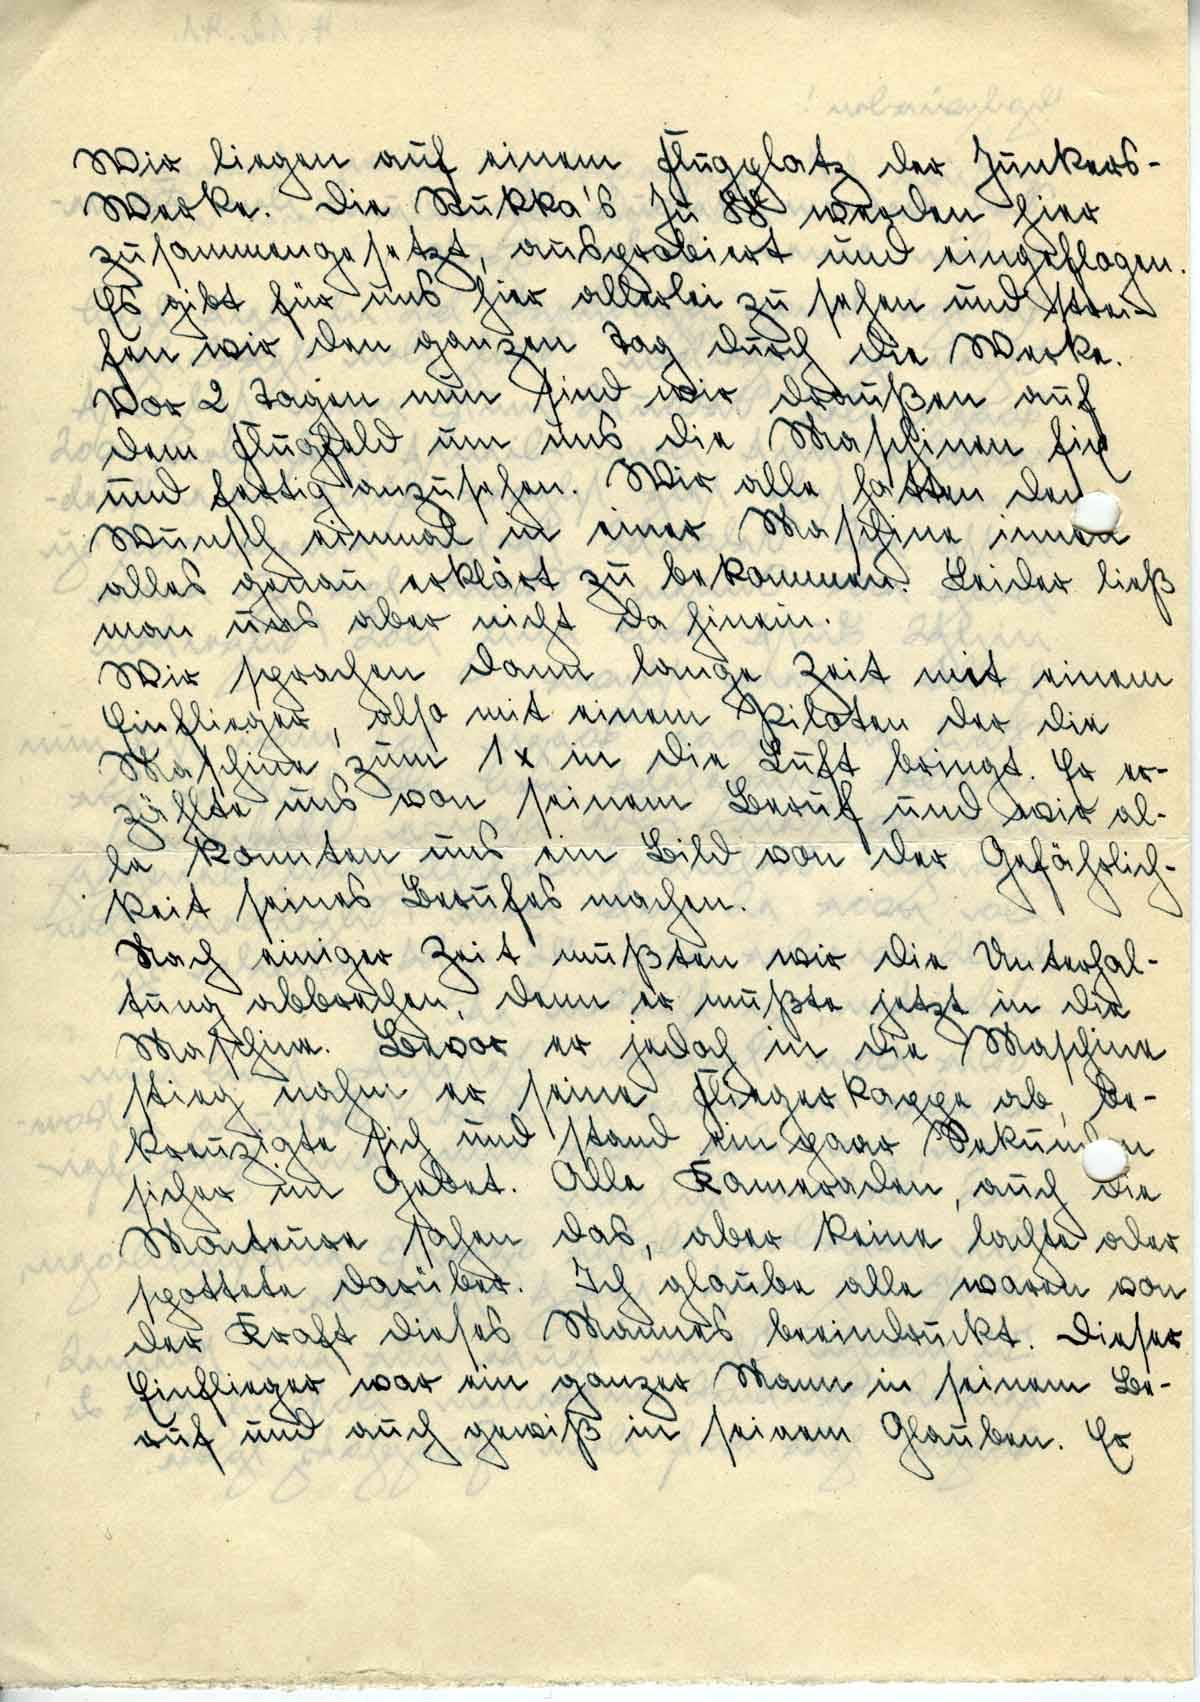 Wir liegen auf einem Flugplatz der Junkers-
Werke. Die Stukka's Ju 88 werden hier
zusammengesetzt, ausprobiert und eingeflogen.
Es gibt für uns hier allerlei zu sehen und strei-
fen wir den ganzen Tag durch die Werke.
Vor 2 Tagen nun sind wir draußen auf
dem Flugfeld um uns die Maschinen fix
und fertig anzusehen. Wir alle hatten den
Wunsch einmal in einer Maschine innen
alles genau erklärt zu bekommen. Leider ließ
man uns aber nicht da hinein.
Wir sprachen dann lange Zeit mit einem
Einflieger, also mit einem Piloten der die
Maschine zum 1x in die Luft bringt. Er er-
zählte uns von seinem Beruf und wir al-
le konnten uns ein Bild von der Gefährlich-
keit seines Berufes machen.
Nach einiger Zeit mußten wir die Unterhal-
tung abbrechen, denn er mußte jetzt in die
Maschine. Bevor er jedoch in die Maschine
stieg nahm er seine Fliegerkappe ab, be-
kreuzigte sich und stand ein paar Sekunden
sicher im Gebet. Alle Kameraden, auch die
Monteure sahen das, aber keine lachte oder
spottete darüber. Ich glaube alle waren von
der Kraft dieses Mannes beeindruckt. Dieser
Einflieger war ein ganzer Mann in seinem Be-
ruf und auch gewiß in seinem Glauben. Er